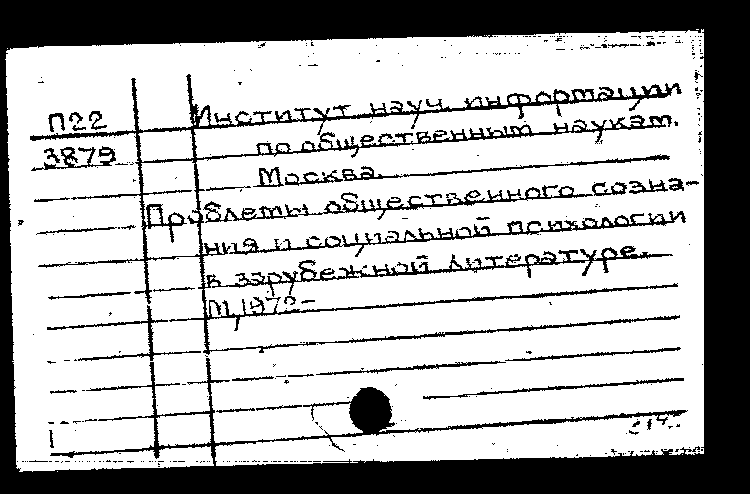 П22
3879
Институт науч. информации
по общественным наукам.
Москва.
Проблемы общественного созна-
ния и социальной психологии
в зарубежной литературе.
М, 1972-